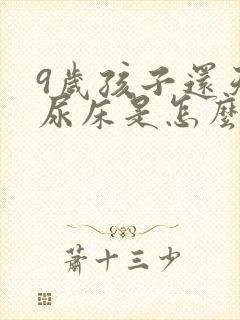 9歲孩子還天
尿床是怎麼
蕭十三少